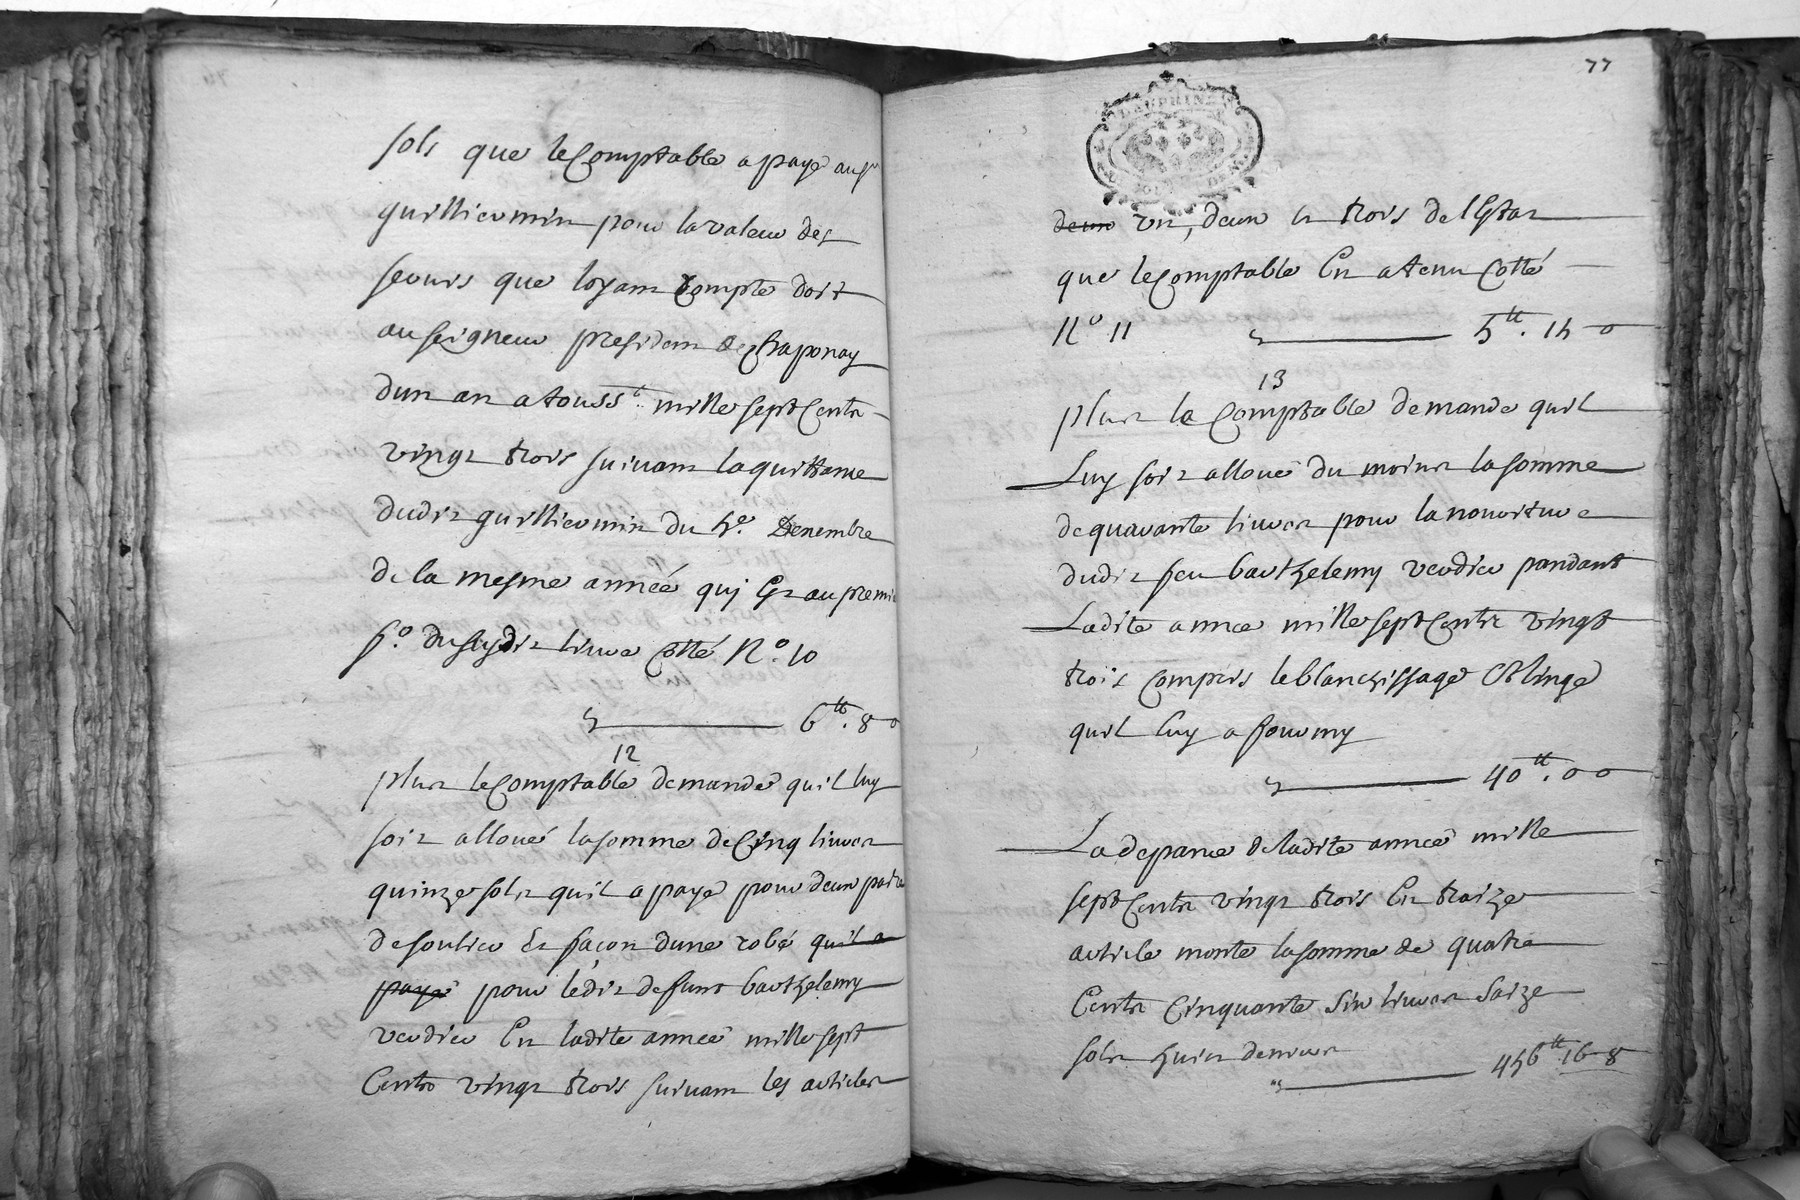 sols que le Comptable a payé au sr
guillieumin pour la valeur des
seruis que loyant Compte doit
au seigneur president de Chaponay
dun an a touss.t mille sept Cents
vingt trois suivant la quittance
dudit guillieumin du 5e. Decembre
de la mesme année qui Est au premier
fo. dususdit livre Cotté No. 10
6lt. 8 0
12
plus le Comptable demande quil luy
soit alloué la somme de Cinq livres
quinze sols quil a payé pour deux paires
de soulier Et façon dune robe quil a
payé pour ledit defunt barthelemy
verdier En ladite année mille sept
Cents vingt trois suivant les articles
77
DAUPHINE
deux un, deux et trois de l'Estat
que le Comptable En a tenu Cotté
No 11 5lt. 15 0
13
plus le Comptable demande quil
Luy soit alloué du moins la somme
de quarante livres pour la nourriture
dudit feu barthelemy verdier pandant
Ladite annee mille sept Cents vingt
trois compris le blanchissage Et linge
quil luy a fourny
40lt. 0 0
La depance de ladite année mille
sept Cents vingt trois En traize
article monte la somme de quatre
Cents Cinquante six livres saize
sols huit deniers 456lt. 16 8